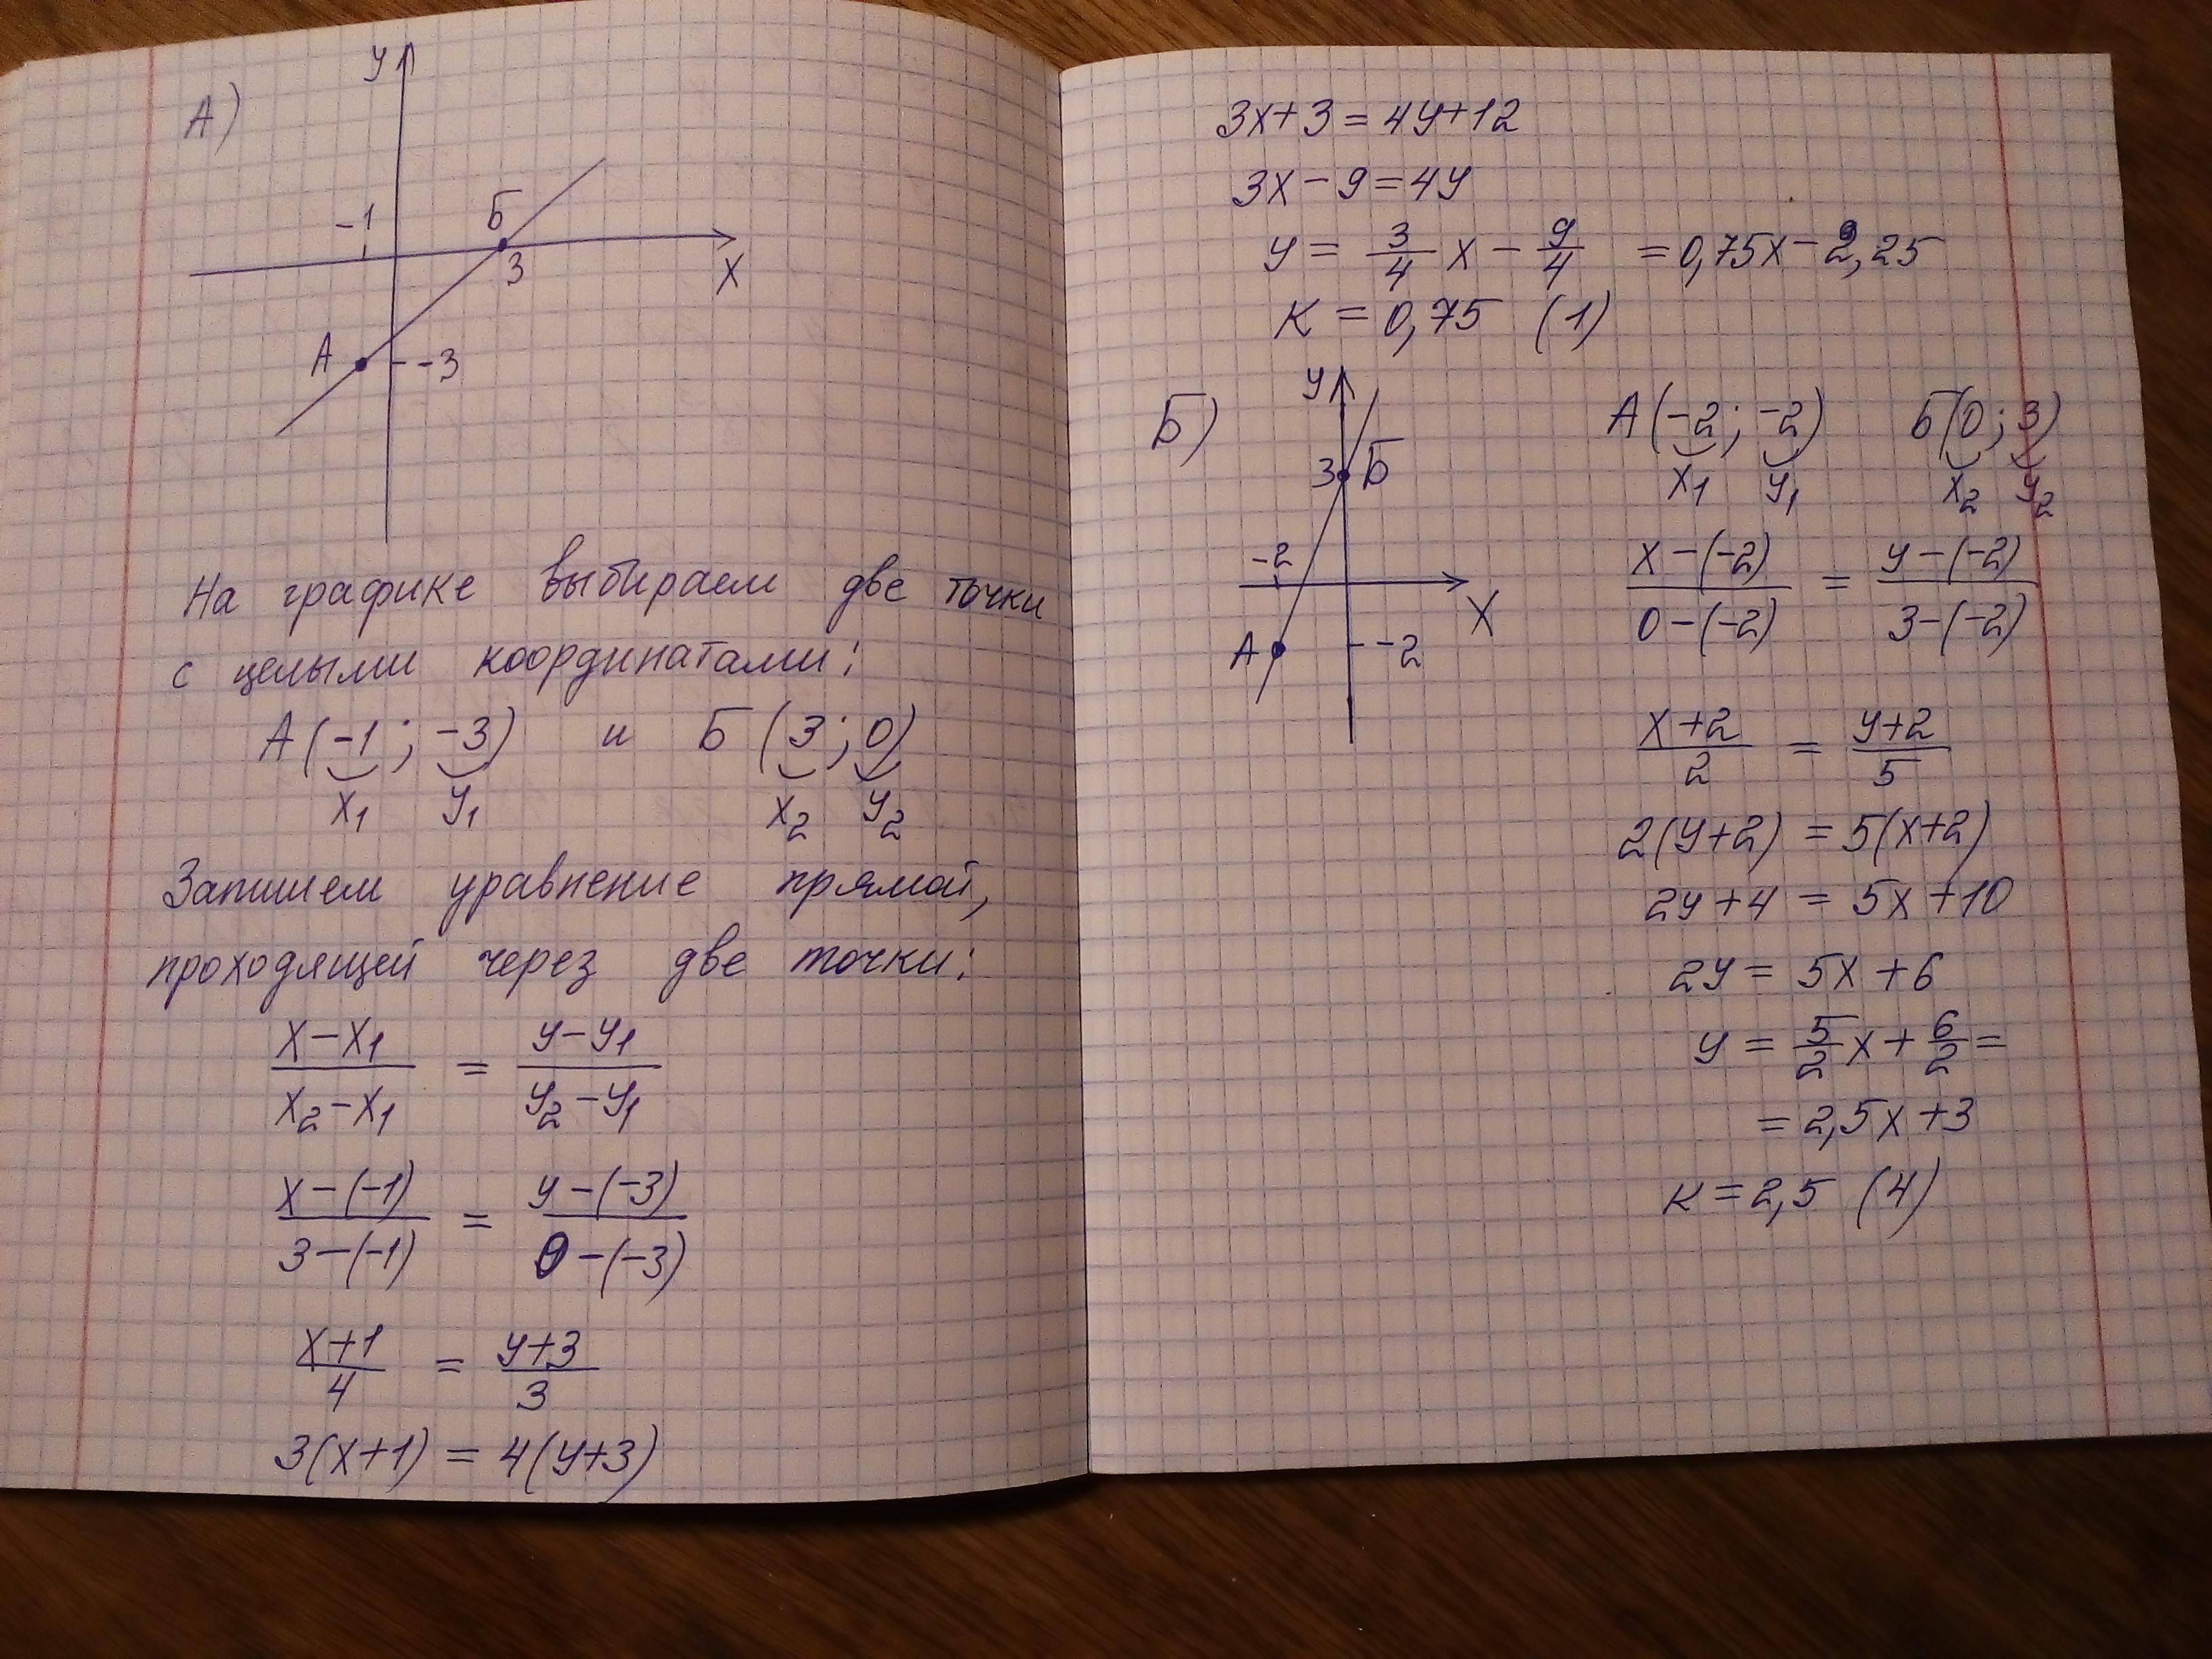 А)
У
-1
Б
3
Х
А
-3
На графике выбираем две точки
с целыми координатами:
А(-1; -3) и Б(3; 0)
x₁ y₁ x₂ y₂
Запишем уравнение прямой,
проходящей через две точки:
(x-x₁)/(x₂-x₁) = (y-y₁)/(y₂-y₁)
(x-(-1))/(3-(-1)) = (y-(-3))/(0-(-3))
(x+1)/4 = (y+3)/3
3(x+1) = 4(y+3)
3x+3 = 4y+12
3x-9 = 4y
y = 3/4 x - 9/4 = 0,75x - 2,25
к = 0,75 (1)
Б)
У
3 Б
-2
Х
А
-2
А(-2; -2) Б(0; 3)
x₁ y₁ x₂ y₂
(x-(-2))/(0-(-2)) = (y-(-2))/(3-(-2))
(x+2)/2 = (y+2)/5
2(y+2) = 5(x+2)
2y+4 = 5x+10
2y = 5x+6
y = 5/2 x + 6/2 =
= 2,5x+3
к = 2,5 (4)